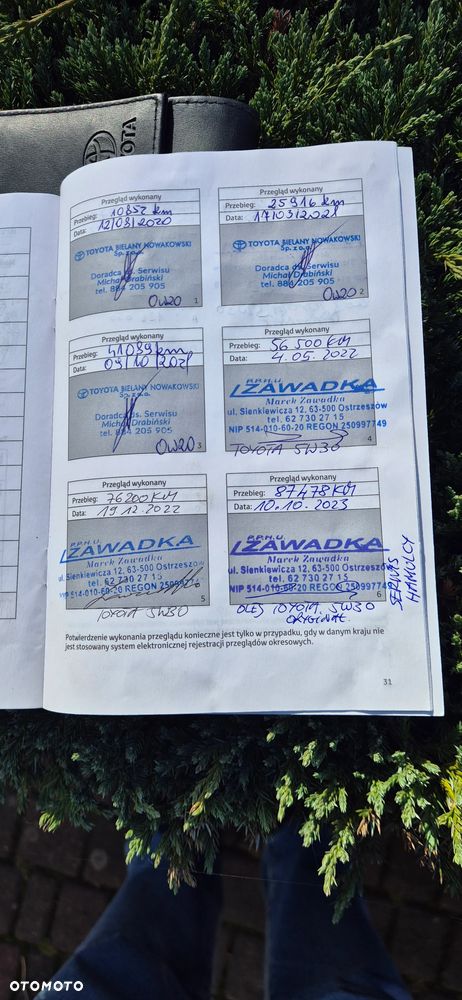 TOYOTA
Przegląd wykonany
Przebieg: 10852 km
Data: 12/08/2020
TOYOTA BIELANY NOWAKOWSKI
Sp. z o.o.
Doradca ds. Serwisu
Michał Drabiński
tel. 884 205 905
0W20
1
Przegląd wykonany
Przebieg: 25916 km
Data: 17/03/2021
TOYOTA BIELANY NOWAKOWSKI
Sp. z o.o.
Doradca ds. Serwisu
Michał Drabiński
tel. 884 205 905
0W20
2
Przegląd wykonany
Przebieg: 41039 km
Data: 04/10/2021
TOYOTA BIELANY NOWAKOWSKI
Sp. z o.o.
Doradca ds. Serwisu
Michał Drabiński
tel. 884 205 905
0W20
3
Przegląd wykonany
Przebieg: 56 500 KM
Data: 4.05.2022
P.P.H.U.
ZAWADKA
Marek Zawadka
ul. Sienkiewicza 12, 63-500 Ostrzeszów
tel. 62 730 27 15
NIP 514-010-60-20 REGON 250997749
4
TOYOTA 5W30
Przegląd wykonany
Przebieg: 76200 KM
Data: 19.12.2022
P.P.H.U.
ZAWADKA
Marek Zawadka
ul. Sienkiewicza 12, 63-500 Ostrzeszów
tel. 62 730 27 15
5
TOYOTA 5W30
Przegląd wykonany
Przebieg: 87478 KM
Data: 10.10.2023
P.P.H.U.
ZAWADKA
Marek Zawadka
ul. Sienkiewicza 12, 63-500 Ostrzeszów
tel. 62 730 27 15
NIP 514-010-60-20 REGON 250997749
6
OLEJ TOYOTA 5W30
ORYGINAŁ
SERWIS
HAMULCY
Potwierdzenie wykonania przeglądu konieczne jest tylko w przypadku, gdy w danym kraju nie
jest stosowany system elektronicznej rejestracji przeglądów okresowych.
31
OTOMOTO